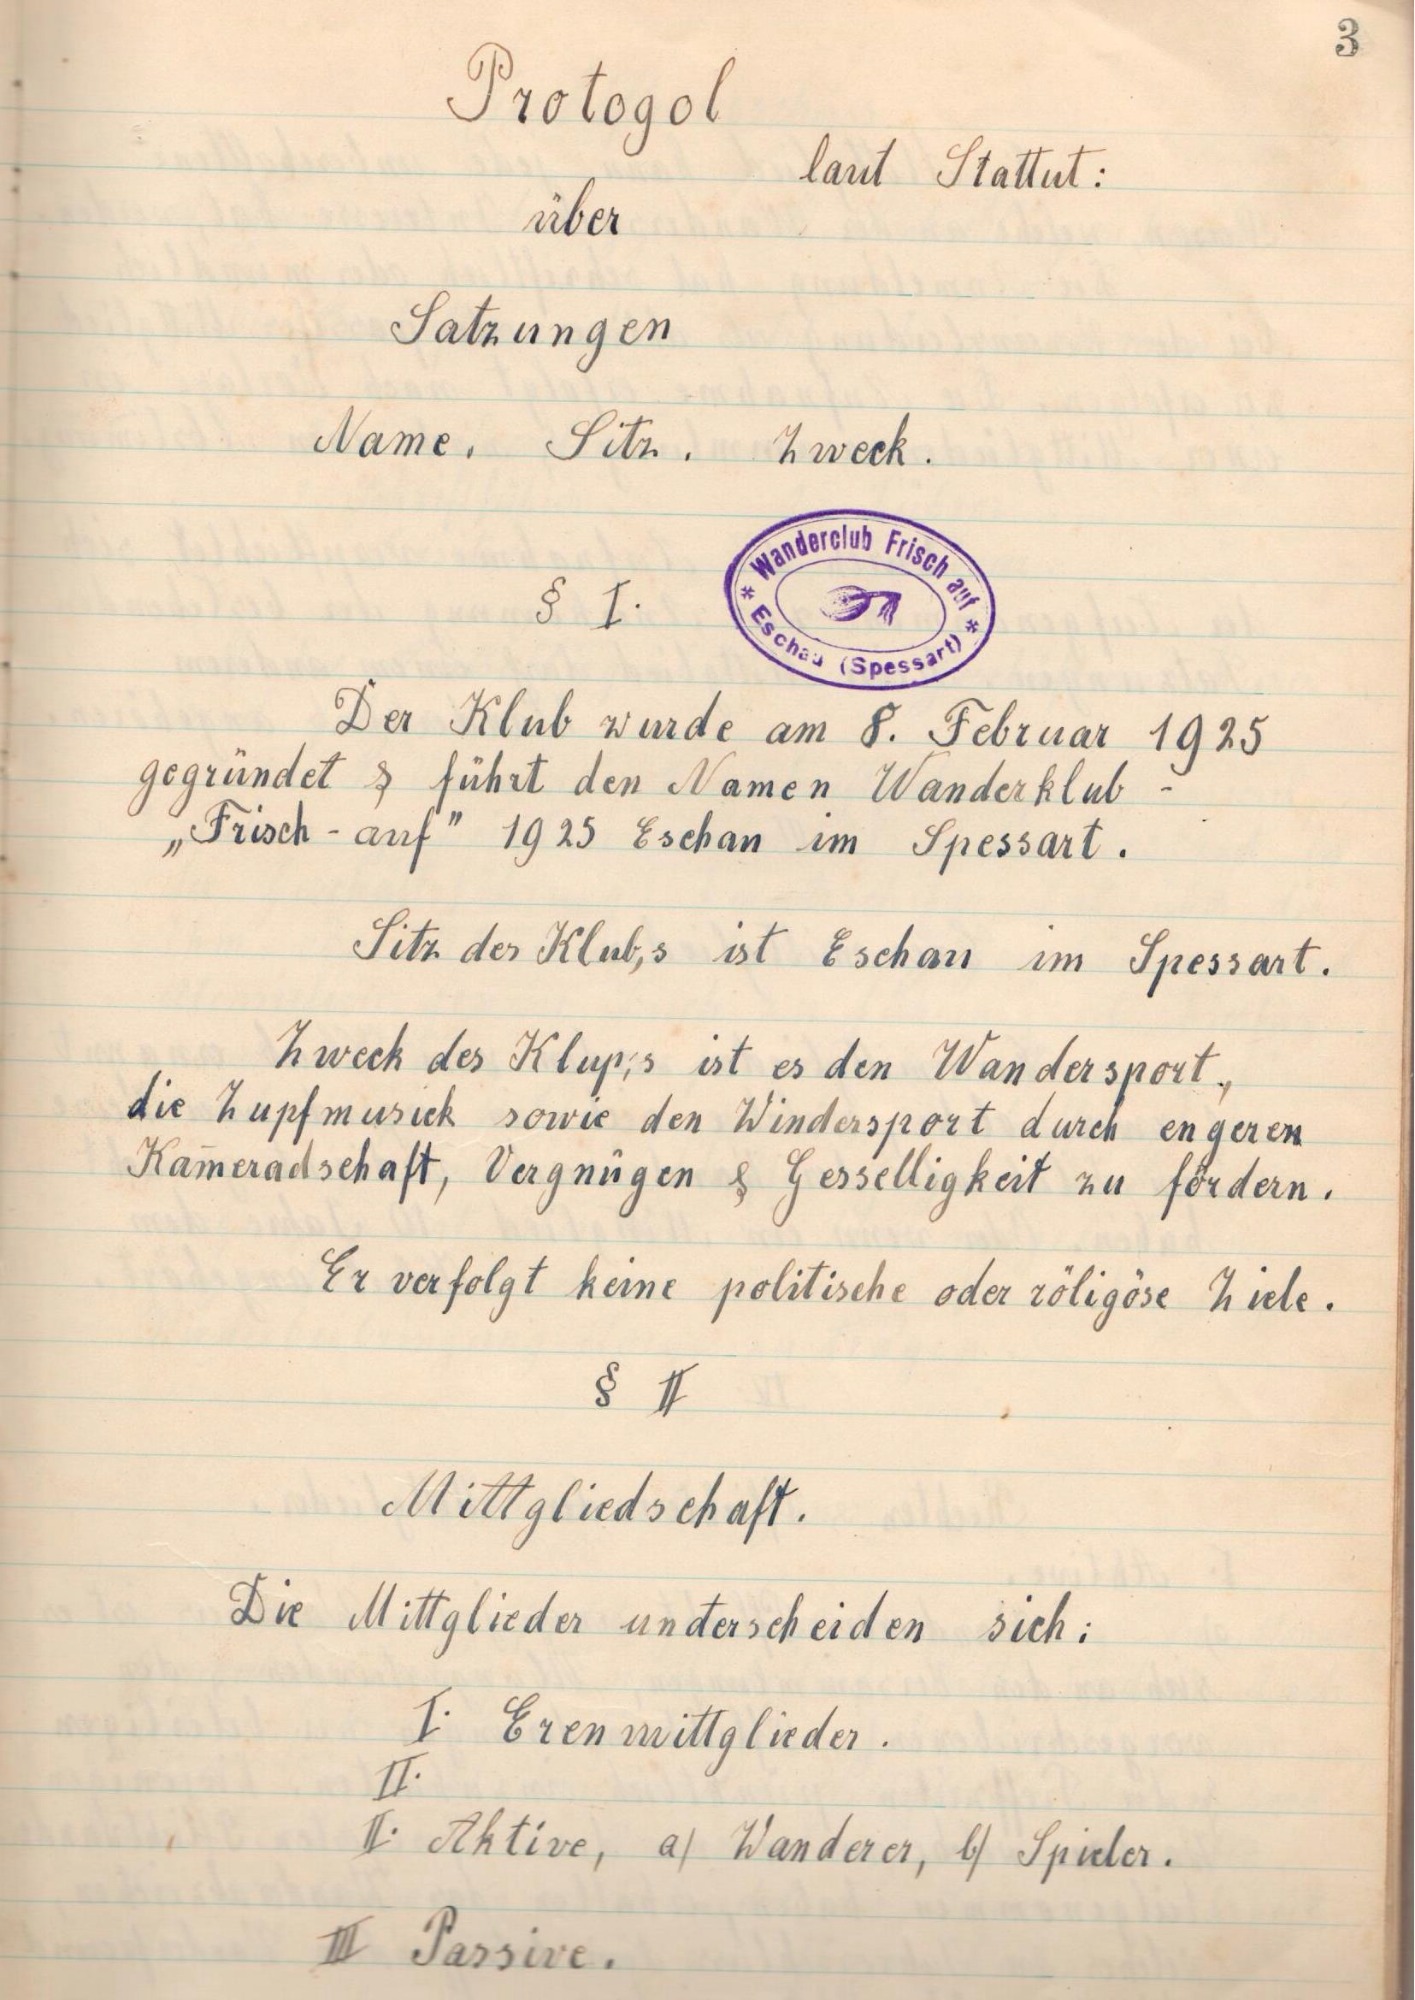 3
Protogol
laut Stattut:
über
Satzungen
Name. Sitz. Zweck.
Wanderclub Frisch auf
* Eschau (Spessart) *
§ I.
Der Klub wurde am 8. Februar 1925
gegründet & führt den Namen Wanderklub -
„Frisch - auf” 1925 Eschau im Spessart.
Sitz des Klub,s ist Eschau im Spessart.
Zweck des Klup,s ist es den Wandersport,
die Zupfmusick sowie den Windersport durch engeren
Kameradschaft, Vergnügen & Gesselligkeit zu fördern.
Er verfolgt keine politische oder röligöse Ziele.
§ II
Mittgliedschaft.
Die Mittglieder unterscheiden sich:
I. Erenmittglieder.
II.
II. Aktive, a) Wanderer, b) Spieler.
III Passive.